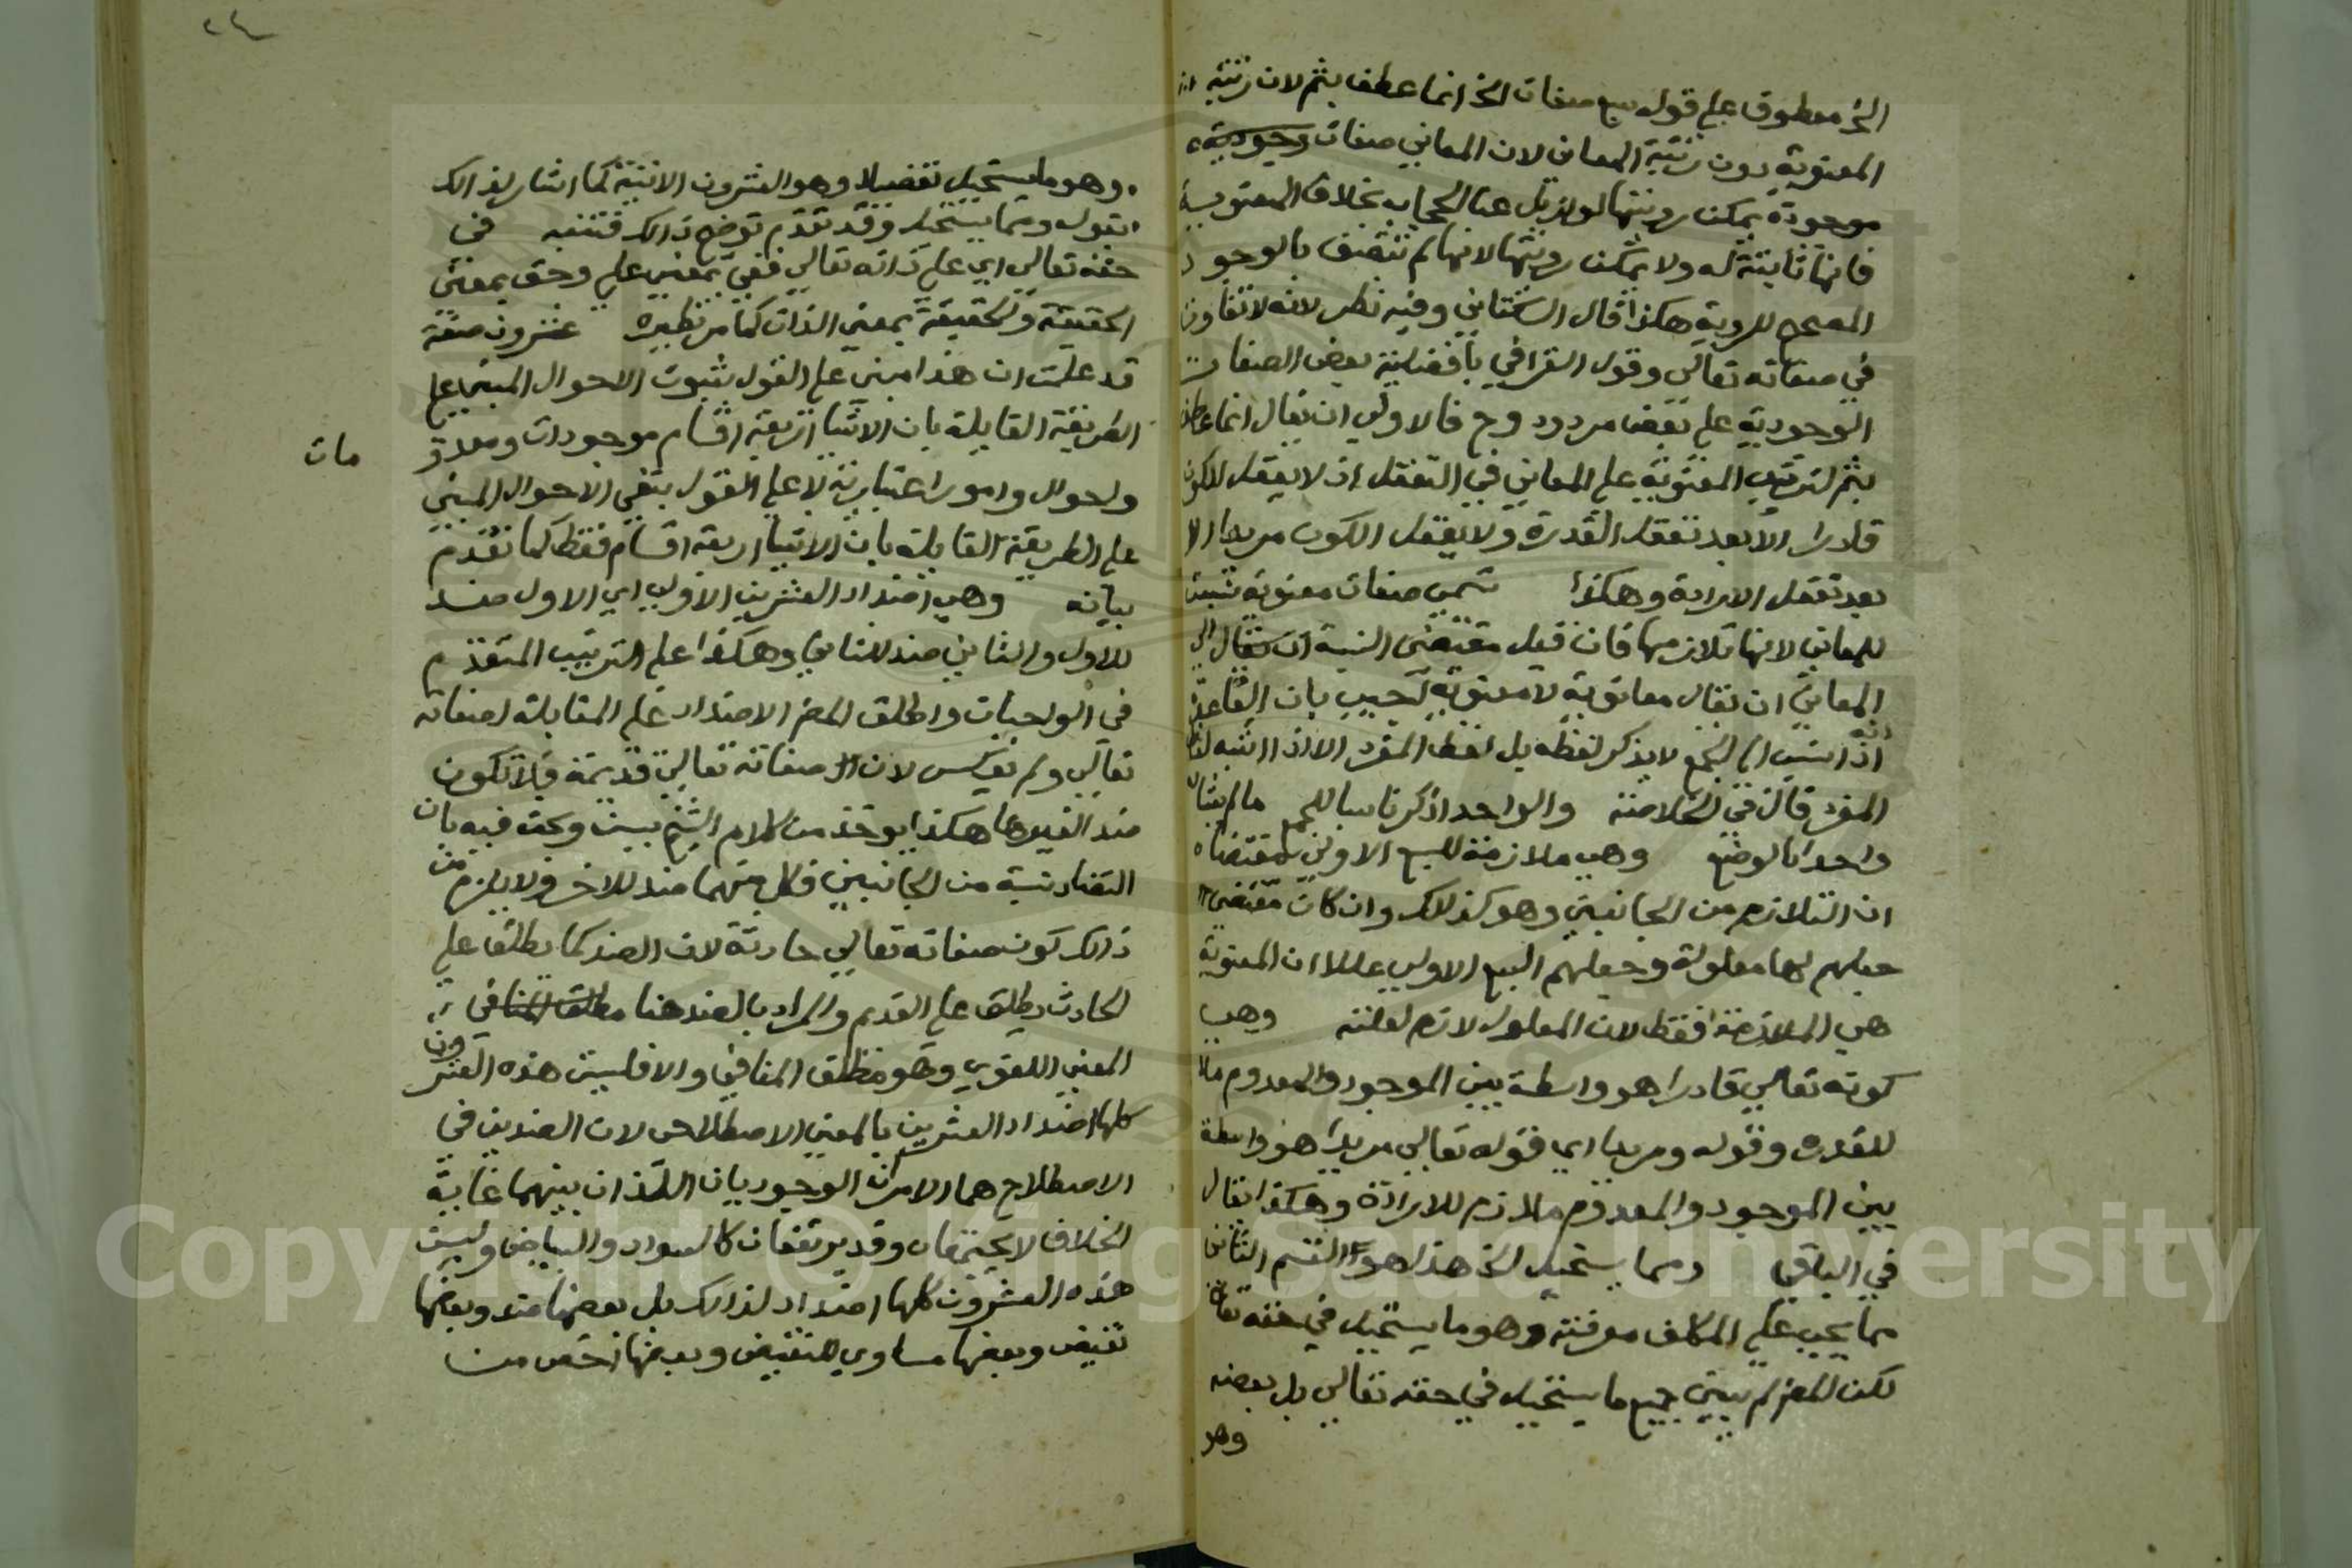 الخ معطوف على قوله سبع صفات الخ انما عطف بثم لان رتبة
المعنوية دون رتبة المعاني لان المعاني صفات وجودية
موجودة يمكن رويتها لو ازيل عنا الحجاب بخلاف المعنوية
فانها ثابتة له ولا يمكن رويتها لانها لم تتصف بالوجود
المصحح للروية هكذا قال السكتاني وفيه نظر لانه لا تفاوت
في صفاته تعالى وقول القرافي بافضلية بعض الصفات
الوجودية على بعض مردود وح فالاولى ان يقال انما عطف
بثم لترتيب المعنوية على المعاني في التعقل اذ لا يعقل الكون
قادرا الا بعد تعقل القدرة ولا يعقل الكون مريدا الا
بعد تعقل الارادة وهكذا تسمى صفات معنوية نسبة
للمعاني لانها تلازمها فان قيل مقتضى النسبة الى
المعاني ان يقال معانوية لا معنوية اجيب بان القاعدة
انه اذا نسب الى الجمع لا يذكر لفظه بل لفظ المفرد الا اذا اشبه لفظ
المفرد قال في الخلاصة والواحد اذكر ناسبا للجمع ما لم يشابه
واحدا بالوضع وهي ملازمة للسبع الاولى مقتضاه
ان التلازم من الجانبين وهو كذلك وان كان مقتضى
جعلهم لها معلولة وجعلهم السبع الاولى عللا ان المعنوية
هي الملازمة فقط لان المعلول لازم لعلته وهي
كونه تعالى قادرا هو واسطة بين الموجود والمعدوم ملا
للقدرة وقوله ومريدا اي قوله تعالى مريدا هو واسطة
بين الموجود والمعدوم ملازم للارادة وهكذا يقال
في الباقي ومما يستحيل الخ هذا هو القسم الثاني
مما يجب على المكلف معرفته وهو ما يستحيل في حقه تعالى
لكن المص لم يبين جميع ما يستحيل في حقه تعالى بل بعضه
وهو
وهو ما يستحيل تفصيلا وهو العشرون الاتية كما اشار لذالك
بقوله ومما يستحيل وقد تقدم توضيح ذالك فتنبه في
حقه تعالى اي على ذاته تعالى ففي بمعنى على وحق بمعنى
الحقيقة والحقيقة بمعنى الذات كما مر نظيره عشرون صفة
قد علمت ان هذا مبني على القول بثبوت الاحوال المبني على
الطريقة القايلة بان الاشيا اربعة اقسام موجودات ومعدو
مات
واحوال وامور اعتبارية لا على القول بنفي الاحوال المبني
على الطريقة القايلة بان الاشيا اربعة اقسام فقط كما تقدم
بيانه وهي اضداد العشرين الاولى اي الاول ضد
للاول والثاني ضد للثاني وهكذا على الترتيب المتقدم
في الواجبات واطلق المص الاضداد على المقابلة لصفاته
تعالى ولم يعكس لان صفاته تعالى قديمة فلا تكون
ضد الغيرها هكذا يوخذ من كلام الشيخ يسن وبحث فيه بان
التضاد نسبة من الجانبين فكل منهما ضد للاخر ولا يلزم من
ذالك كون صفاته تعالى حادثة لان الضد كما يطلق على
الحادث يطلق على القديم والمراد بالضد هنا مطلق المنافي
المعنى اللغوي وهو مطلق المنافي والا فليست هذه العشرون
كلها اضداد العشرين بالمعنى الاصطلاحي لان الضدين في
الاصطلاح هما الامران الوجوديان اللذان بينهما غاية
الخلاف لا يجتمعان وقد يرتفعان كالسواد والبياض وليست
هذه العشرون كلها اضداد لذالك بل بعضها ضد وبعضها
نقيض وبعضها مساوي للنقيض وبعضها اخص من
Copyright © King Saud University